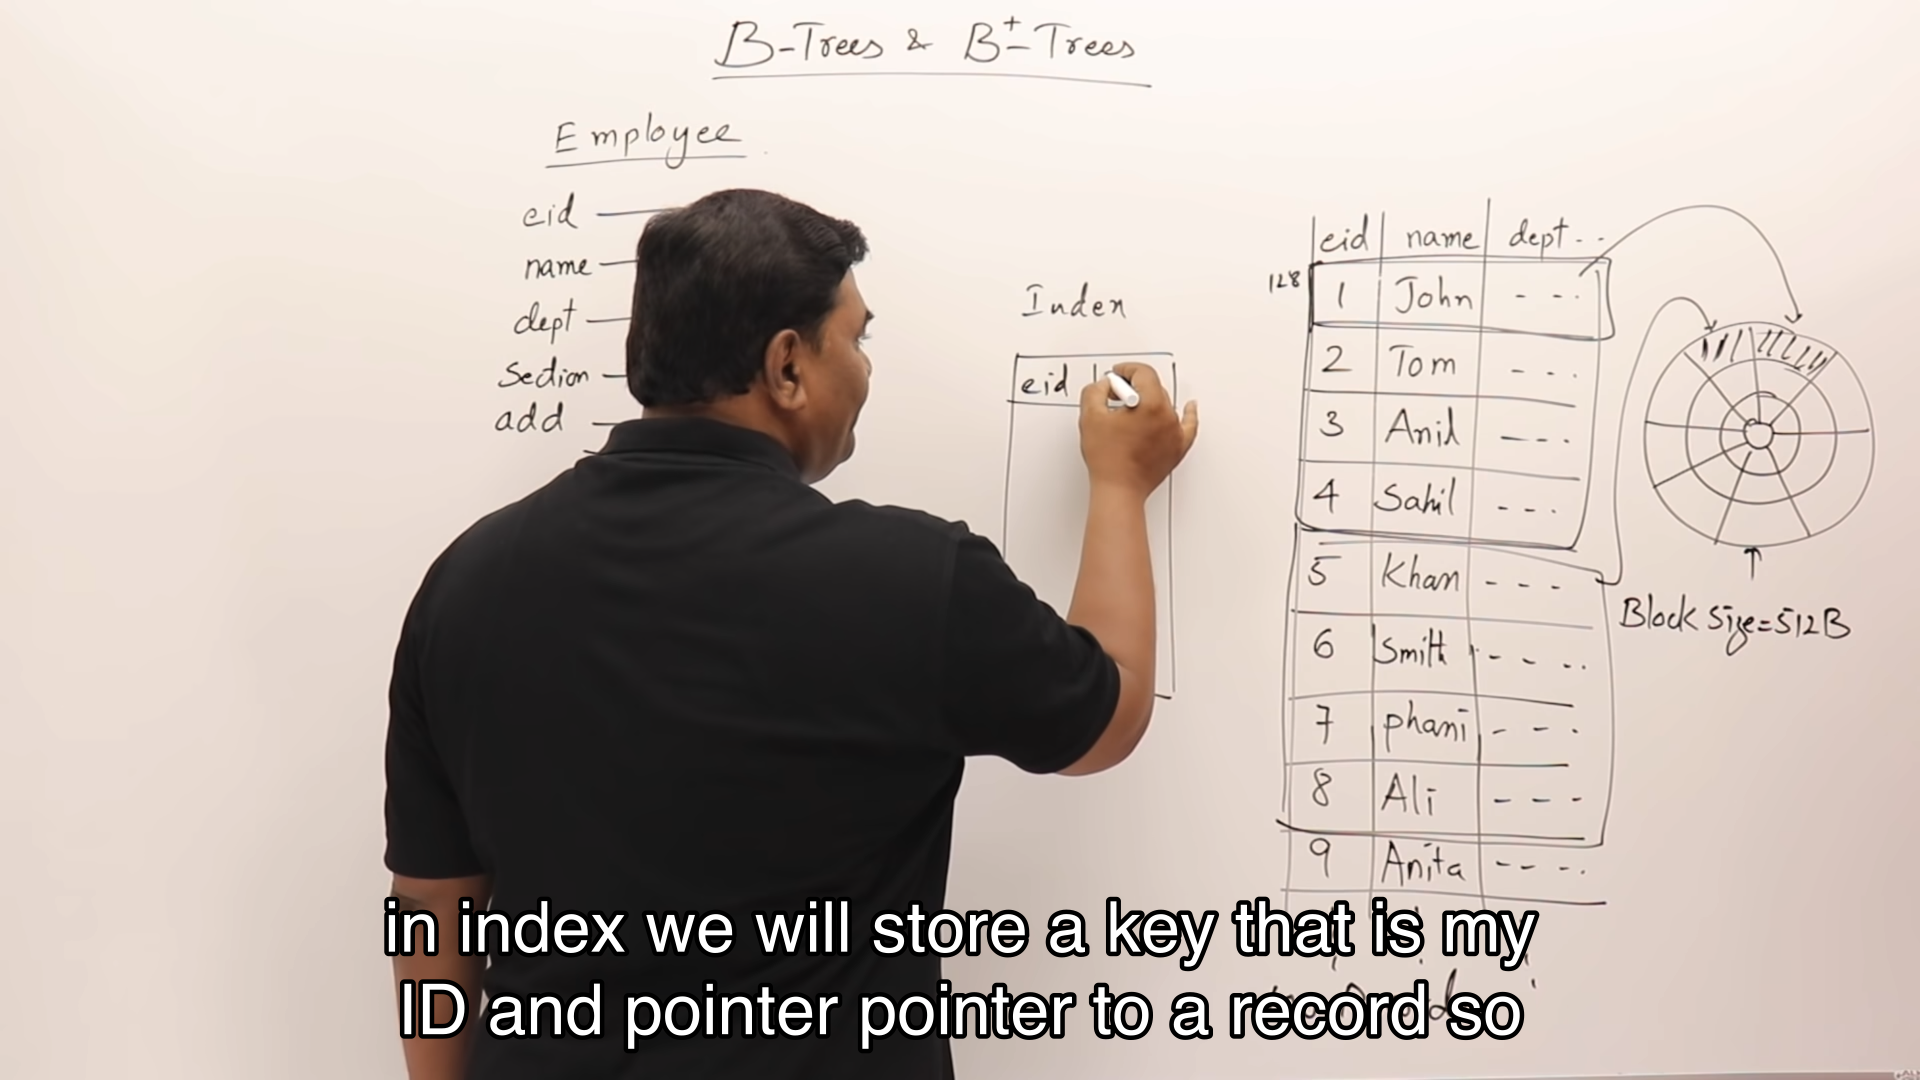 B-Trees & B+-Trees
Employee
eid
name
dept
Section
add
Index
eid
eid name dept - -
128
1 John - - -
2 Tom - - -
3 Anil - - -
4 Sahil - - -
5 Khan - - -
6 Smith - - - -
7 phani - - -
8 Ali - - -
9 Anita - - - -
Block Size=512B
in index we will store a key that is my
ID and pointer pointer to a record so